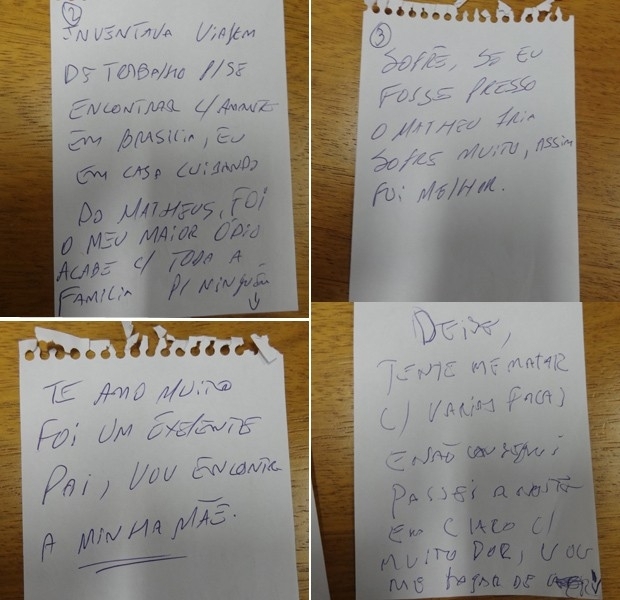 2
INVENTAVA VIAJEM
DE TRABALHO P/ SE
ENCONTRAR C/ AMANTE
EM BRASILIA, EU
EM CASA CUIDANDO
DO MATHEUS, FOI
O MEU MAIOR ODIO
ACABE C/ TODA A
FAMILIA P/ NINGUÉM
3
SOFRE, SE EU
FOSSE PRESSO
O MATHEU IRIA
SOFRE MUITO, ASSIM
FOI MELHOR.
TE AMO MUITO
FOI UM EXELENTE
PAI, VOU ENCONTRA
A MINHA MÃE.
DEISE,
TENTE ME MATAR
C/ VARIAS FACAS
E NÃO CONSEGUI
PASSEI A NOITE
EM CLARO C/
MUITO DOR, VOU
ME DE